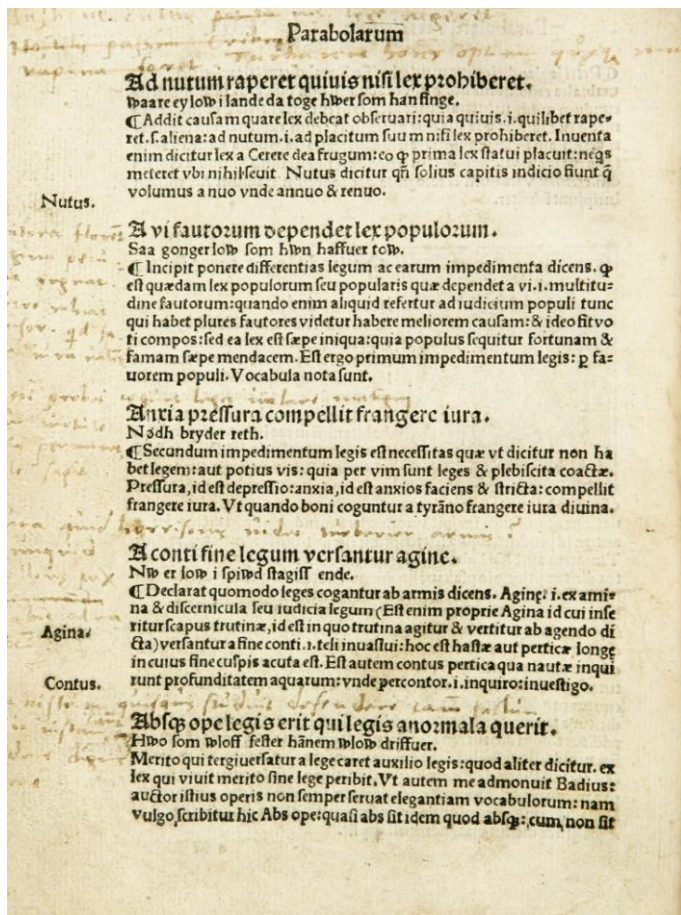 Parabolarum
Ad nutum raperet quiuis nisi lex prohiberet.
Waare ey low i lande da toge hwer som han finge.
¶ Addit causam quare lex debeat obseruari: quia quiuis .i. quilibet rape-
ret .s. aliena: ad nutum .i. ad placitum suum nisi lex prohiberet. Inuenta
enim dicitur lex a Cerere dea frugum: eo ꝙ prima lex statui placuit: neqs
meteret vbi nihil seuit. Nutus dicitur qñ solius capitis indicio fiunt q̃
Nutus.
volumus a nuo vnde annuo & renuo.
A vi fautorum dependet lex populorum.
Saa gonger low som hwn haffuer tow.
¶ Incipit ponere differentias legum ac earum impedimenta dicens. ꝙ
est quædam lex populorum seu popularis quæ dependet a vi .i. multitu-
dine fautorum: quando enim aliquid refertur ad iudicium populi tunc
qui habet plures fautores videtur habere meliorem causam: & ideo fit vo
ti compos: sed ea lex est sæpe iniqua: quia populus sequitur fortunam &
famam sæpe mendacem. Est ergo primum impedimentum legis: ꝑ fa-
uorem populi. Vocabula nota sunt.
Anxia pressura compellit frangere iura.
Nødh bryder reth.
¶ Secundum impedimentum legis est necessitas quæ vt dicitur non ha
bet legem: aut potius vis: quia per vim sunt leges & plebiscita coactæ.
Pressura, id est depressio: anxia, id est anxios faciens & stricta: compellit
frangere iura. Vt quando boni coguntur a tyrāno frangere iura diuina.
A conti fine legum versantur agine.
Nw er low i spiwd stagiss ende.
¶ Declarat quomodo leges cogantur ab armis dicens. Aginę .i. exami-
na & discernicula seu iudicia legum (Est enim proprie Agina id cui inse
Agina.
ritur scapus trutinæ, id est in quo trutina agitur & vertitur ab agendo di
cta) versantur a fine conti .i. teli inuasiui: hoc est hastæ aut perticæ longe
in cuius fine cuspis acuta est. Est autem contus pertica qua nautæ inqui
Contus.
runt profunditatem aquarum: vnde percontor .i. inquiro: inuestigo.
Absqȝ ope legis erit qui legis anormala querit.
Hwo som wloff fester hānem wlow driffuer.
Merito qui tergiuersatur a lege caret auxilio legis: quod aliter dicitur. ex
lex qui viuit merito sine lege peribit. Vt autem me admonuit Badius:
auctor istius operis non semper seruat elegantiam vocabulorum: nam
vulgo scribitur hic Abs ope: quasi abs sit idem quod absqȝ: cum non sit